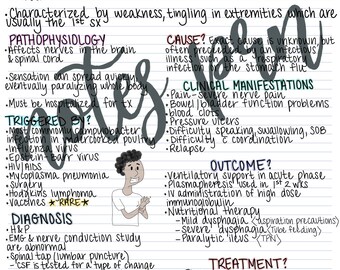 • Characterized by weakness, tingling in extremities which are
usually the 1st sx
PATHOPHYSIOLOGY
• Affects nerves in the brain
& spinal cord
• Sensation spread quickly
eventually paralyzing whole body
• Must be hospitalized for tx
TRIGGERED BY?
• Most
undercooked poultry
• Influenza virus
• Epstein-Barr virus
• HIV/AIDS
• Mycoplasma pneumonia
• Surgery
• Hodgkins lymphoma
• Vaccines *RARE*
DIAGNOSIS
• H&P
• EMG & nerve conduction study
are abnormal
• Spinal tap (lumbar puncture)
- CSF is tested for a type of change
CAUSE?
unknown, but
often
infection or stomach flu
CLINICAL MANIFESTATIONS
• Pain - severe nerve pain
• Bowel/bladder function problems
• Blood clots
• Pressure ulcers
• Difficulty speaking, swallowing, SOB
• Difficulty coordination
• Relapse
OUTCOME?
• Ventilatory support in acute phase
• Plasmapheresis used in 1st 2 wks
• IV administration of high dose
immunoglobulin
• Nutritional therapy
- Mild dysphagia (aspiration precautions)
- Severe dysphagia (tube feeding)
- Paralytic ileus (TPN)
TREATMENT?
notes pam